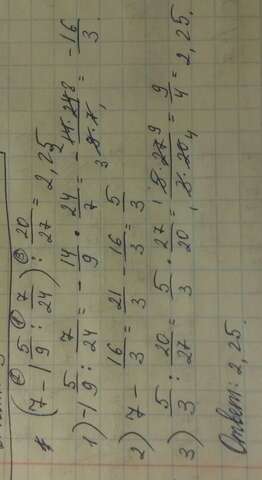 (7 - 1 5/9 : 7/24) : 20/27 = 2,25
1) -1 5/9 : 7/24 = - 14/9 · 24/7 = - 14·24/9·7 = - 16/3.
2) 7 - 16/3 = 21/3 - 16/3 = 5/3
3) 5/3 : 20/27 = 5/3 · 27/20 = 5·27/3·20 = 9/4 = 2,25.
Ответ: 2,25.